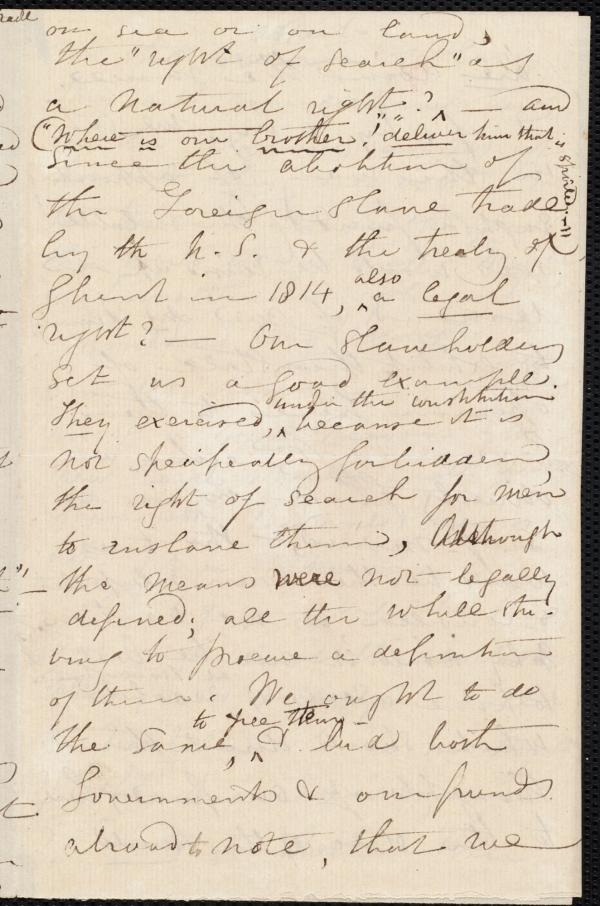 on sea or on land,
the "right of search" as
a Natural right? — and
("Where is our brother!" "deliver him that is spoiled.—")
since the abolition of
the Foreign slave trade
by the U.S. & the treaty of
Ghent in 1814, also a legal
right? — Our slaveholders
set us a good example.
They exercised, under the constitution
because it is
not specifically forbidden,
the right of search for men
to enslave them, Although
the means were not legally
defined; all the while stri-
ving to procure a definition
of them. We ought to do
the same, to free them—
& bid both
Governments & our friends
abroad to note, that we